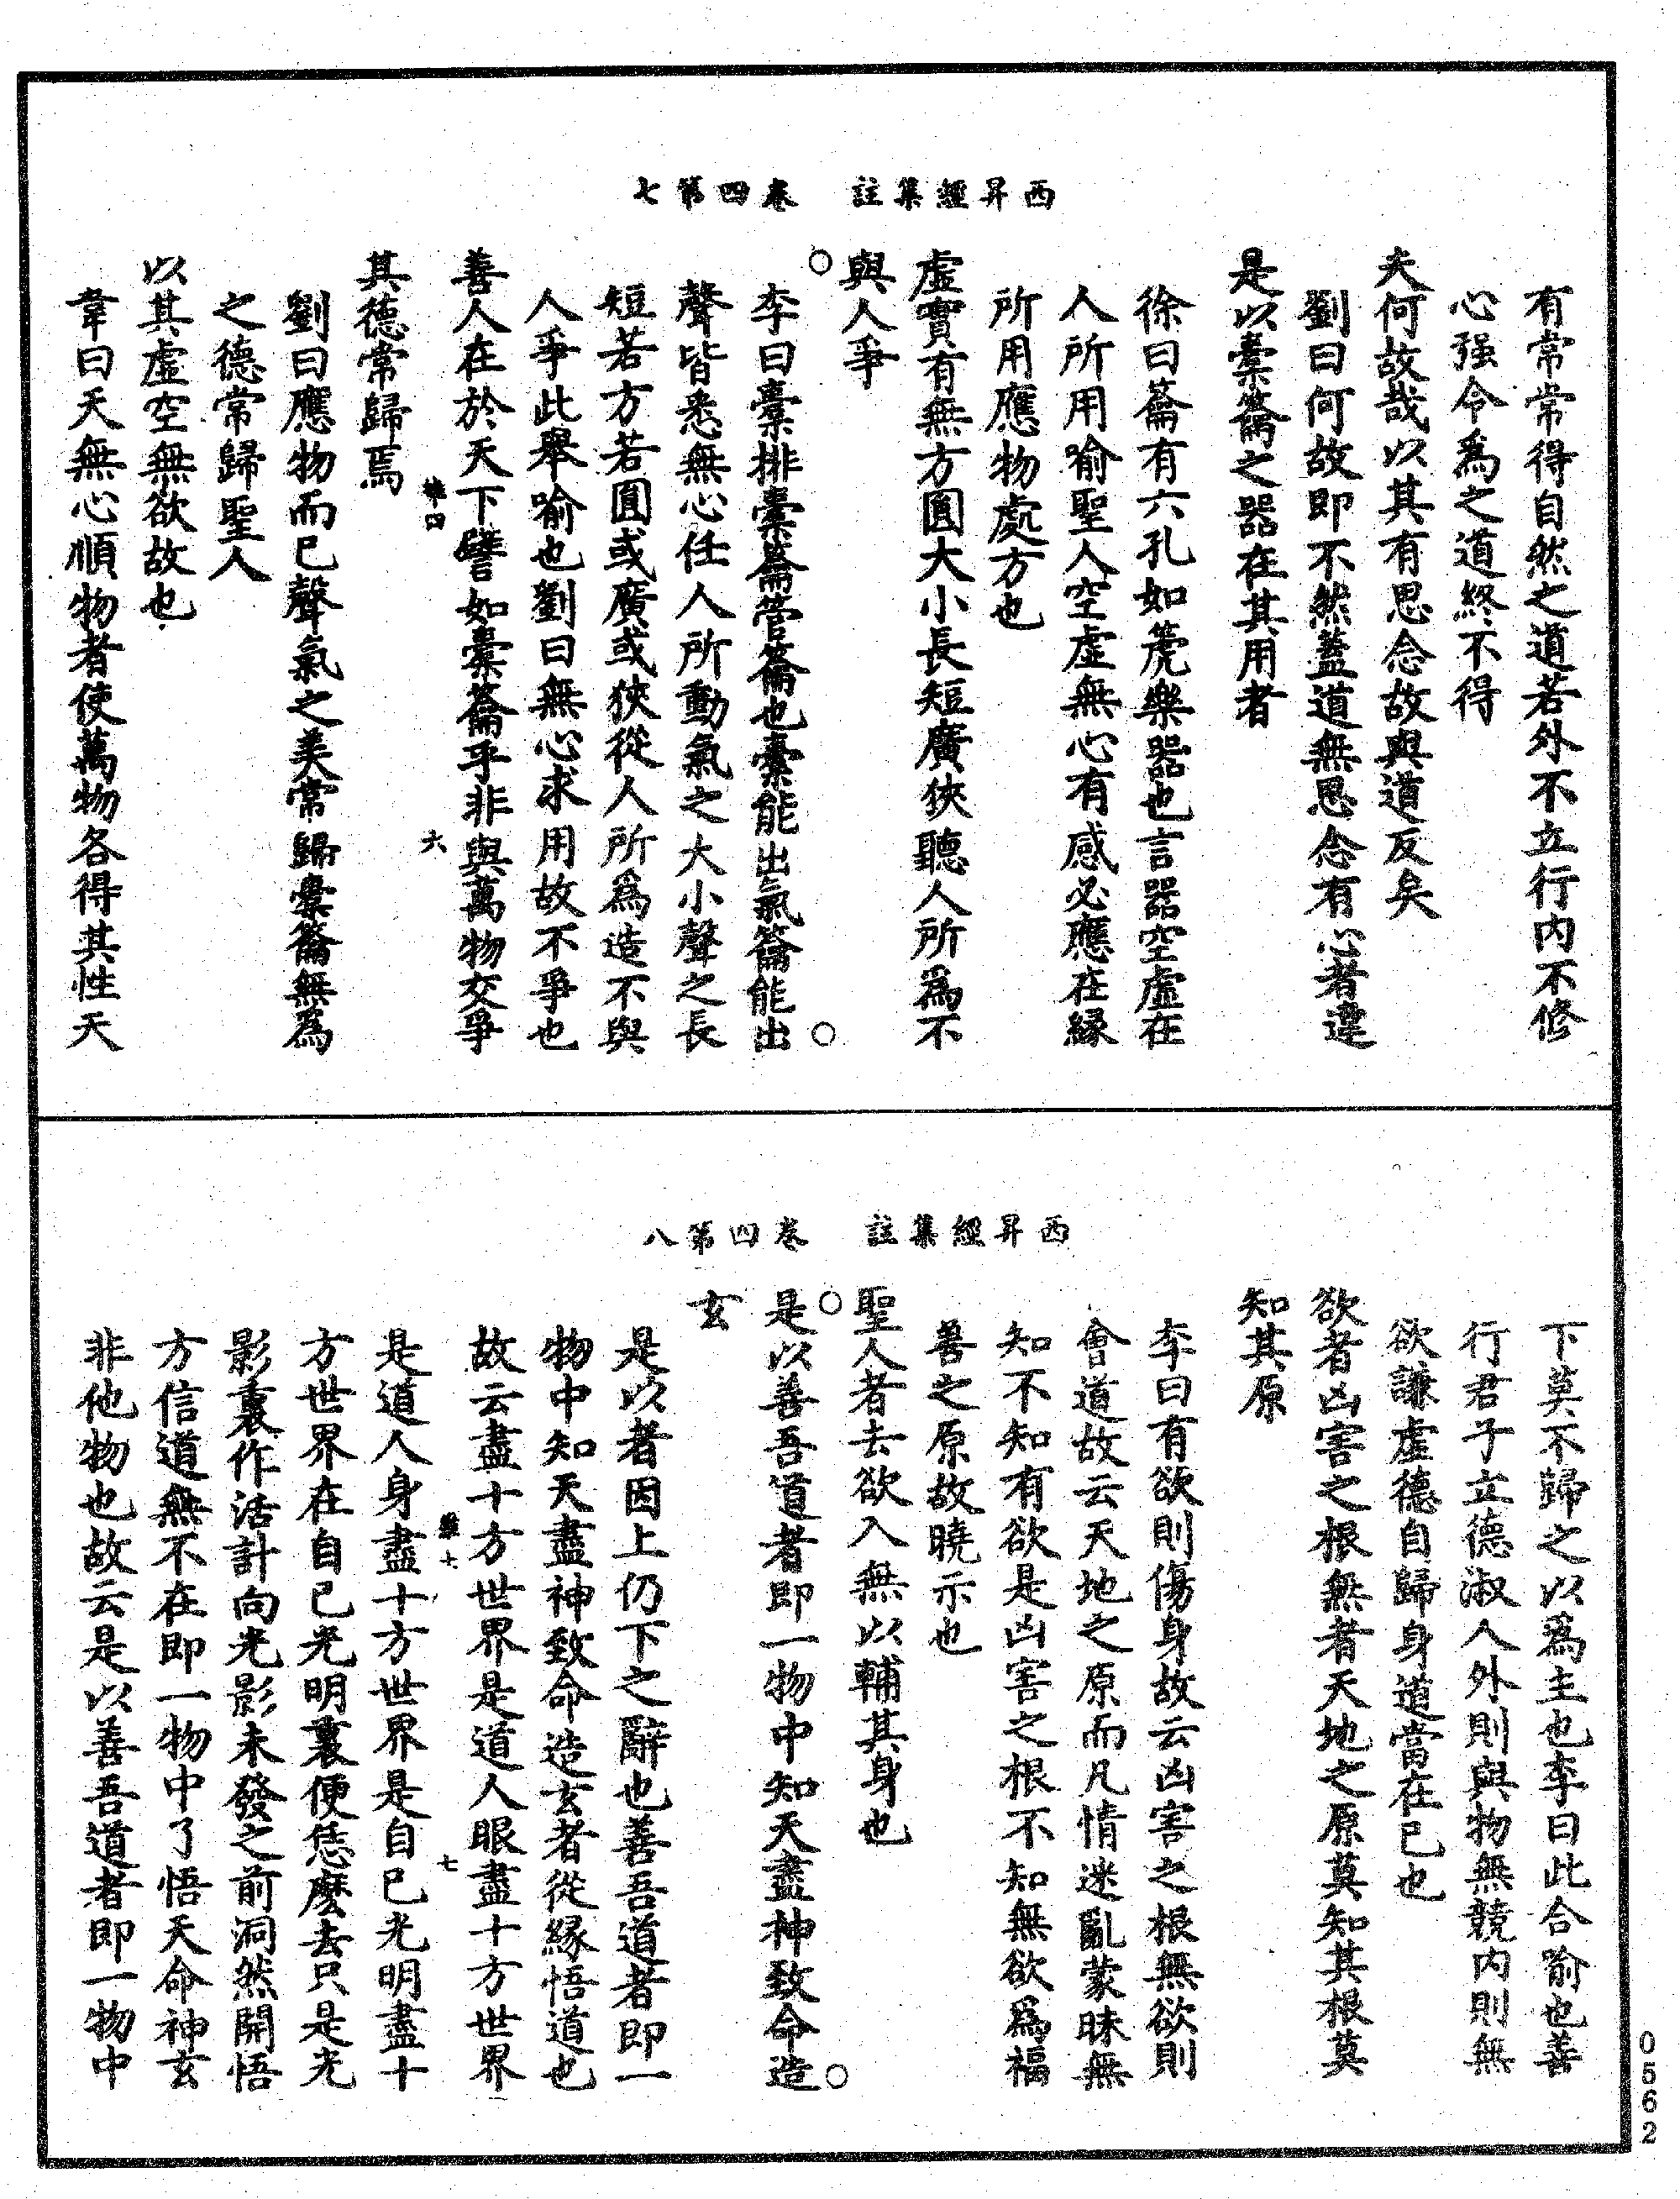 西昇經集註　卷四第七
有常常得自然之道若外不立行內不修
心强令爲之道終不得
夫何故哉以其有思念故與道反矣
劉曰何故即不然蓋道無思念有心者違
是以橐籥之器在其用者
徐曰籥有六孔如箎樂器也言器空虛在
人所用喻聖人空虛無心有感必應在緣
所用應物處方也
虛實有無方圓大小長短廣狹聽人所爲不
與人爭
○
○
李曰橐排橐籥管籥也橐能出氣籥能出
聲皆悉無心任人所動氣之大小聲之長
短若方若圓或廣或狹從人所爲造不與
人爭此舉喻也劉曰無心求用故不爭也
善人在於天下譬如橐籥乎非與萬物交爭
四　六
其德常歸焉
劉曰應物而已聲氣之美常歸橐籥無爲
之德常歸聖人
以其虛空無欲故也
韋曰天無心順物者使萬物各得其性天
西昇經集註　卷四第八
下莫不歸之以爲主也李曰此合喻也善
行君子立德淑人外則與物無競內則無
欲謙虛德自歸身道當在已也
欲者凶害之根無者天地之原莫知其根莫
知其原
李曰有欲則傷身故云凶害之根無欲則
會道故云天地之原而凡情迷亂蒙昧無
知不知有欲是凶害之根不知無欲爲福
善之原故曉示也
聖人者去欲入無以輔其身也
○
○
是以善吾道者即一物中知天盡神致命造
玄
是以者因上仍下之辭也善吾道者即一
物中知天盡神致命造玄者從緣悟道也
故云盡十方世界是道人眼盡十方世界
七　七
是道人身盡十方世界是自已光明盡十
方世界在自已光明裏便恁麽去只是光
影裏作活計向光影未發之前洞然開悟
方信道無不在即一物中了悟天命神玄
非他物也故云是以善吾道者即一物中
0562